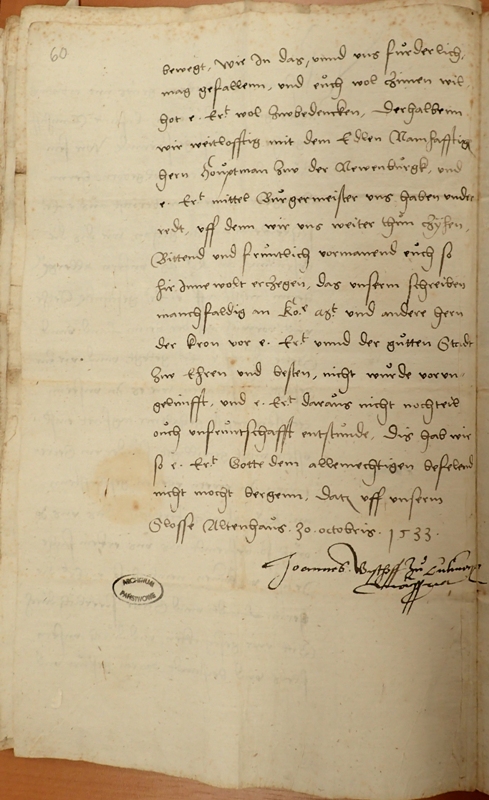 60
bewegt, wie In das, unnd uns furderlich,
mag gefallenn, und euch wol zimen wil,
hot e. Ert wol zubedencken, Derhalbenn
wir weitlofftig mit dem Edlen Namhafftig
hern Houptman zw der Newenburgk, und
e. Ert mittel Burgermeister uns haben under
redt, uff denn wir uns weiter thun
Bittend und fruntlich vormanend euch so
hir Inne wolt erzegen, das unserm schreiben
manchfaldig an Ko.r und andere hern
der kron vor e. Ert unnd der gutten Stadt
zw Ehren und besten, nicht wurde vorun
gelimfft, und e. Ert daraus nicht nochteil
ouch unfruntschafft entstunde, Dis hab wir
so e. Ert Gotte dem allemechtigen befelend
nicht mocht bergenn, Datum uff unserm
Slosse Altenhaus. 30. octobris. 1533.
Joannes. Bischoff zu
ARCHIWUM
PAŃSTWOWE